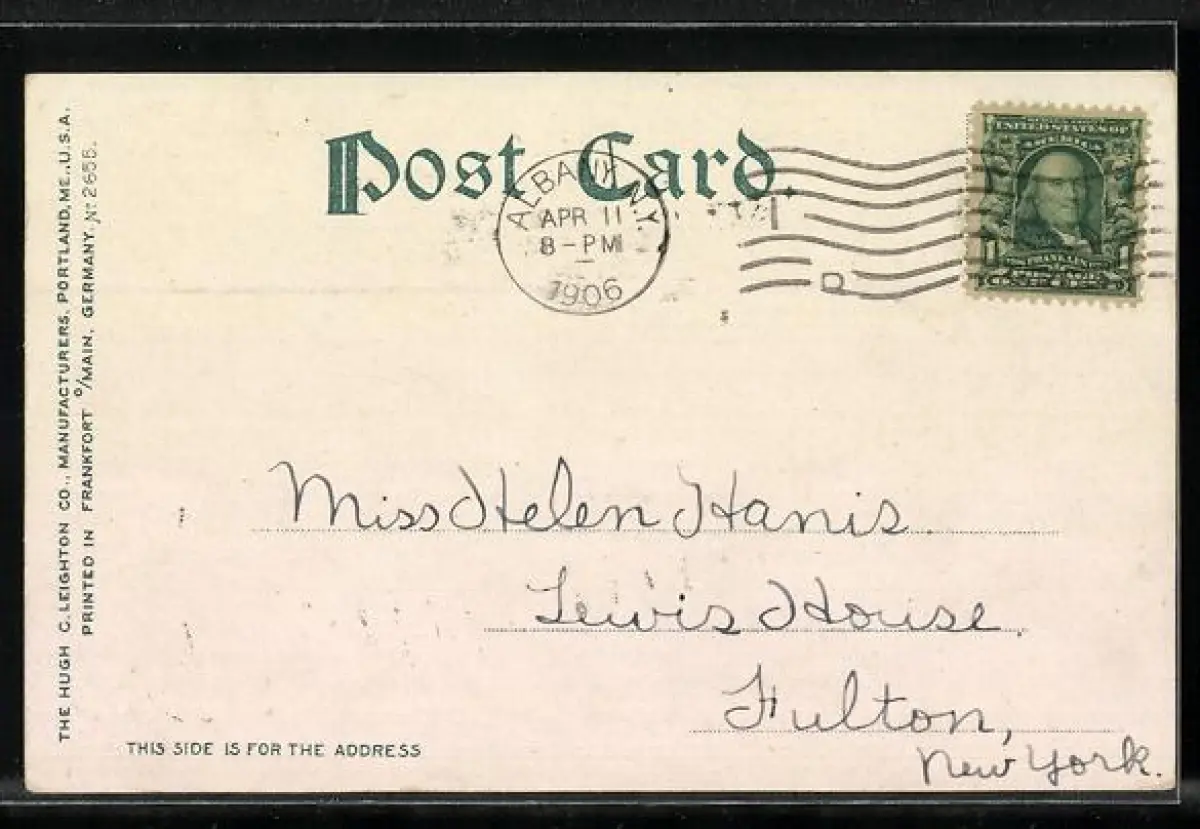 Post Card.
ALBANY, N.Y.
APR 11
8-PM
1906
UNITED STATES OF
AMERICA
1 FRANKLIN 1
ONE CENT
THE HUGH C. LEIGHTON CO., MANUFACTURERS, PORTLAND, ME., U.S.A.
PRINTED IN FRANKFORT o/MAIN, GERMANY. No 2655.
Miss Helen Hanis.
Lewis House.
Fulton,
New York.
THIS SIDE IS FOR THE ADDRESS